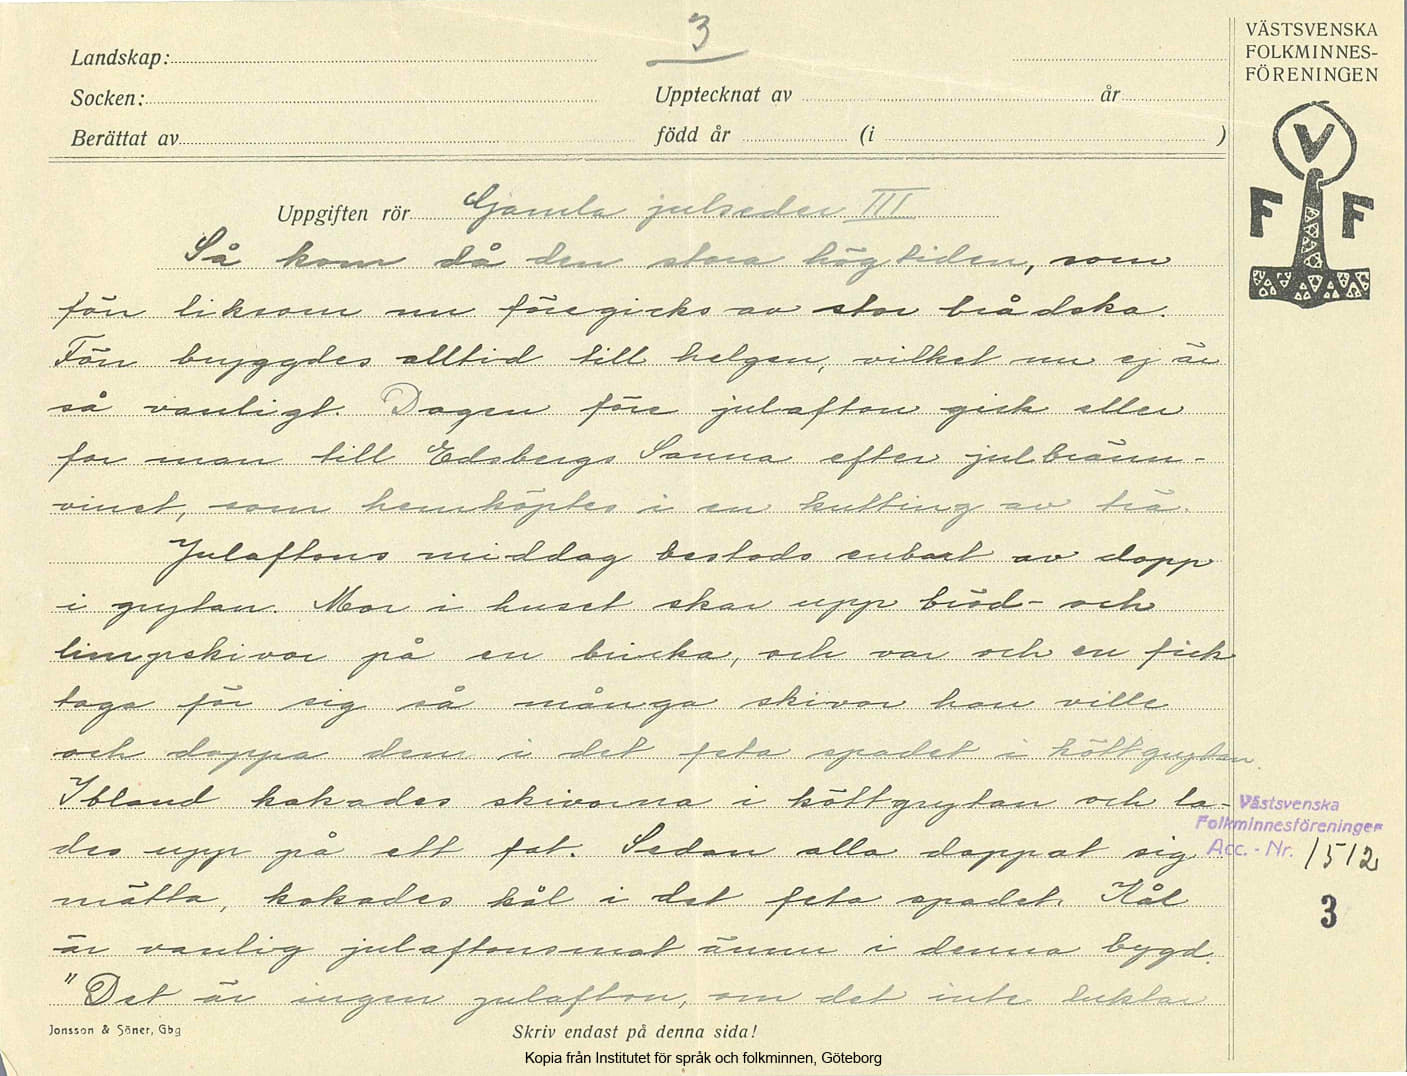 3
VÄSTSVENSKA
FOLKMINNES-
FÖRENINGEN
V
F F
Landskap:
Socken:
Upptecknat av år
Berättat av
född år (i )
Uppgiften rör Gamla julseder III
Så kom då den stora högtiden, som
förr liksom nu föregicks av stor brådska.
Förr bryggdes alltid till helgen, vilket nu ej är
så vanligt. Dagen före julafton gick eller
for man till Edsbergs Sanna efter julbränn-
vinet, som hemköptes i en kutting av trä.
Julaftons middag bestods enbart av dopp
i grytan. Mor i huset skar upp bröd- och
limpskivor på en bricka, och var och en fick
taga för sig så många skivor han ville
och doppa dem i det feta spadet i köttgrytan.
Ibland kokades skivorna i köttgrytan och la-
des upp på ett fat. Sedan alla doppat sig
mätta, kokades kål i det feta spadet. Kål
är vanlig julaftonsmat ännu i denna bygd.
"Det är ingen julafton, om det inte luktar
Västsvenska
Folkminnesföreningen
Acc. - Nr. 1512
3
Jonsson & Söner, Gbg
Skriv endast på denna sida!
Kopia från Institutet för språk och folkminnen, Göteborg